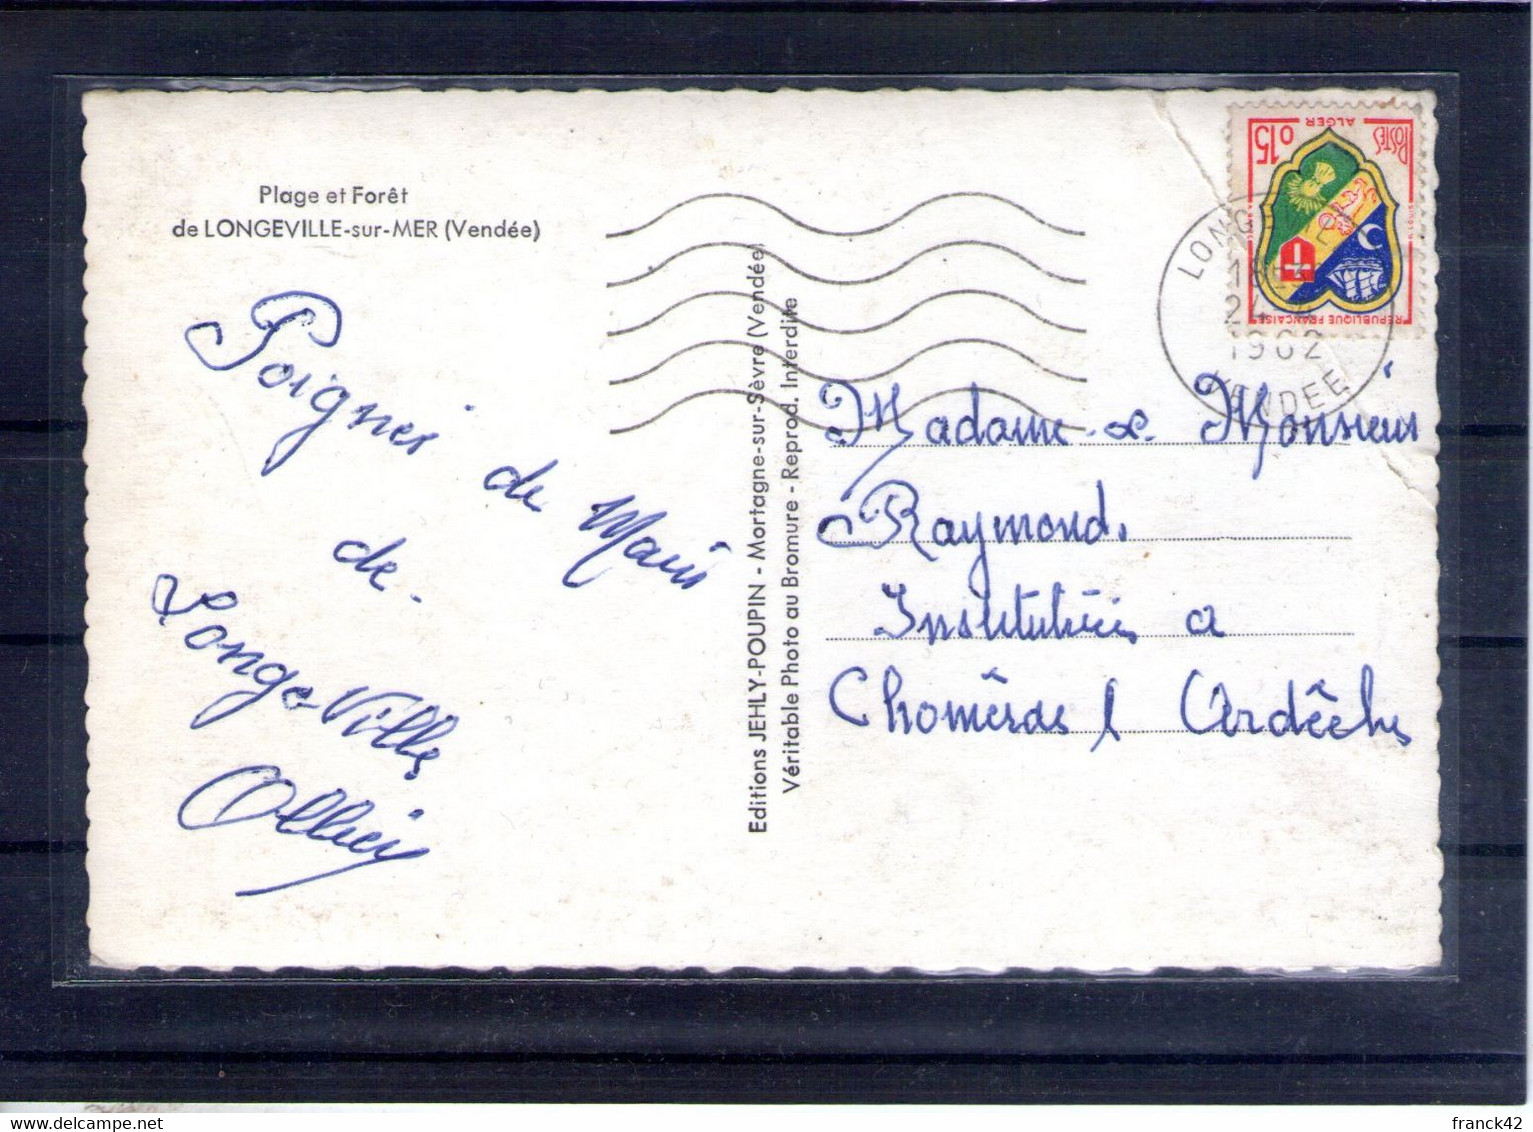 Plage et Forêt
de LONGEVILLE-sur-MER (Vendée)
Poignei de Main
de.
Longeville
Ollier
Editions JEHLY-POUPIN - Mortagne-sur-Sèvre (Vendée)
Véritable Photo au Bromure - Reprod. Interdite
POSTES
ALGER
0,15
REPUBLIQUE FRANÇAISE
1962
VENDEE
Madame & Monsieur
Raymond.
a
Choméras Ardêche
franck42